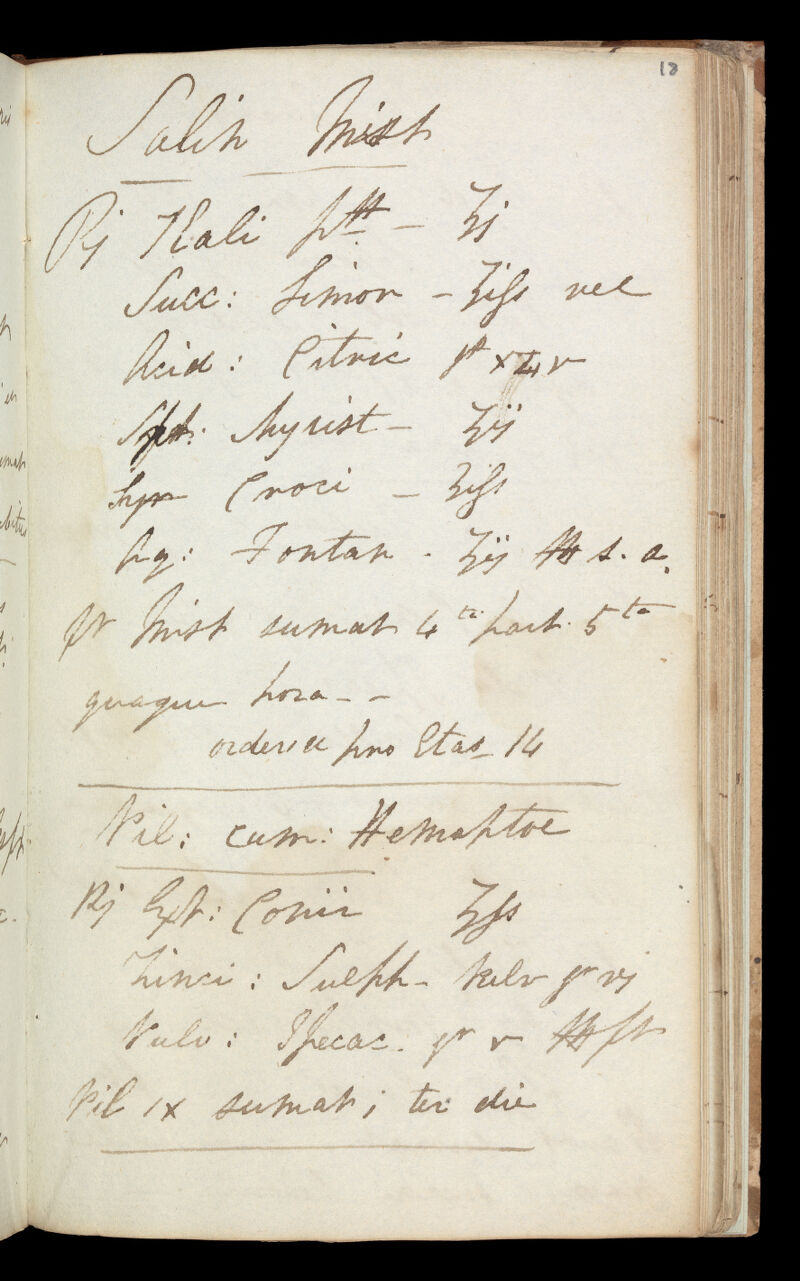 13
Salin Mist
℞ Kali ppt – ʒj
Succ: Limon – ℥iſs vel
Acid: Citric gr xxv
Spt: Myrist – ʒij
Syr Croci – ʒiſs
Aq: Fontan - ℥ij M s. a.
ft Mist sumat 4ta part. 5ta
quaque hora - -
ordered pro Etas 14
Pil: cum: Hemoptoe
℞ Ext: Conii ʒſs
Zinci: Sulph - Pulv gr vj
Pulv: Ipecac. gr v M ft
Pil ix sumat j ter die